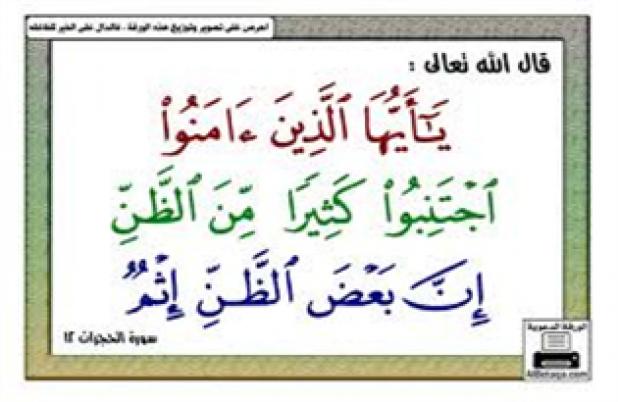 احرص على تصوير وتوزيع هذه الورقة ، فالدال على الخير كفاعله
قال الله تعالى :
يَٰٓأَيُّهَا ٱلَّذِينَ ءَامَنُوا۟
ٱجْتَنِبُوا۟ كَثِيرًا مِّنَ ٱلظَّنِّ
إِنَّ بَعْضَ ٱلظَّنِّ إِثْمٌ
سورة الحجرات ١٢
الورقة الدعوية
AlBetaqa.com